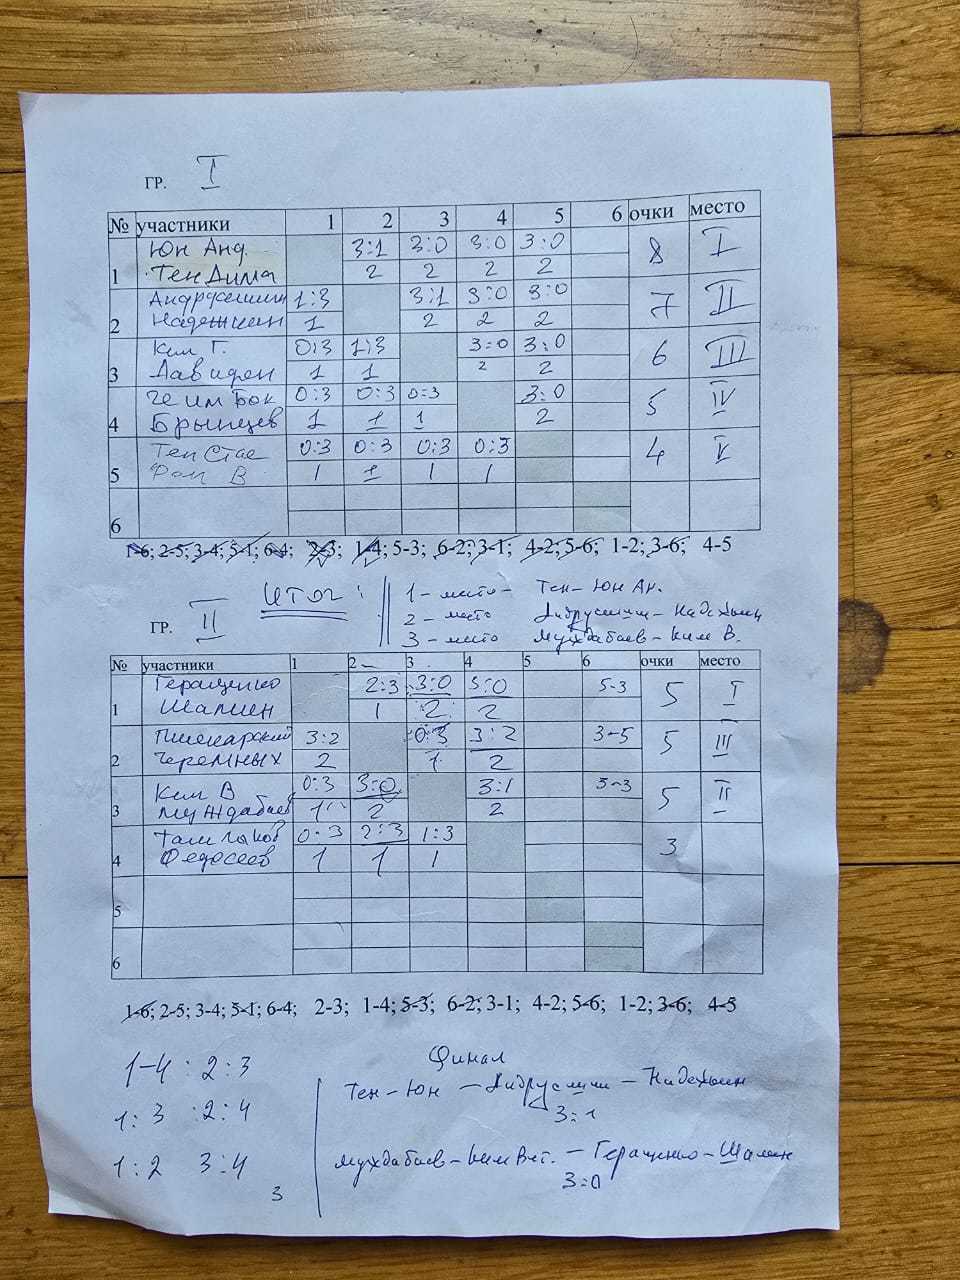 ГР. I
№ участники 1 2 3 4 5 6 очки место
1 Юн Анд. Тен Дима 3:1 3:0 3:0 3:0 8 I
2 2 2 2
2 Андрусишин Надежкин 1:3 3:1 3:0 3:0 7 II
1 2 2 2
3 Ким Г. 0:3 1:3 3:0 3:0 6 III
1 1 2 2
4 Че им Бок Брынцев 0:3 0:3 0:3 3:0 5 IV
1 1 1 2
5 Тен Стас В 0:3 0:3 0:3 0:3 4 V
1 1 1 1
6
1-6; 2-5; 3-4; 5-1; 6-4; 2-3; 1-4; 5-3; 6-2; 3-1; 4-2; 5-6; 1-2; 3-6; 4-5
Итог:
1 - место - Тен - Юн Ан.
2 - место Андрусишин - Надежкин
3 - место Муждабаев - Ким В.
ГР. II
№ участники 1 2 3 4 5 6 очки место
1 Геращенко Шалин 2:3 3:0 3:0 5-3 5 I
1 2 2
2 Пшекарский Черемных 3:2 0:3 3:2 3-5 5 III
2 1 2
3 Ким В Муждабаев 0:3 3:0 3:1 3-3 5 II
1 2 2
4 Федосеев 0:3 2:3 1:3 3
1 1 1
5
6
1-6; 2-5; 3-4; 5-1; 6-4; 2-3; 1-4; 5-3; 6-2; 3-1; 4-2; 5-6; 1-2; 3-6; 4-5
1-4 : 2:3
1:3 :2:4
1:2 3:4
3
Финал
Тен - Юн - Андрусишин - Надежкин
3:1
Муждабаев - Ким - Геращенко - Шалин
3:0